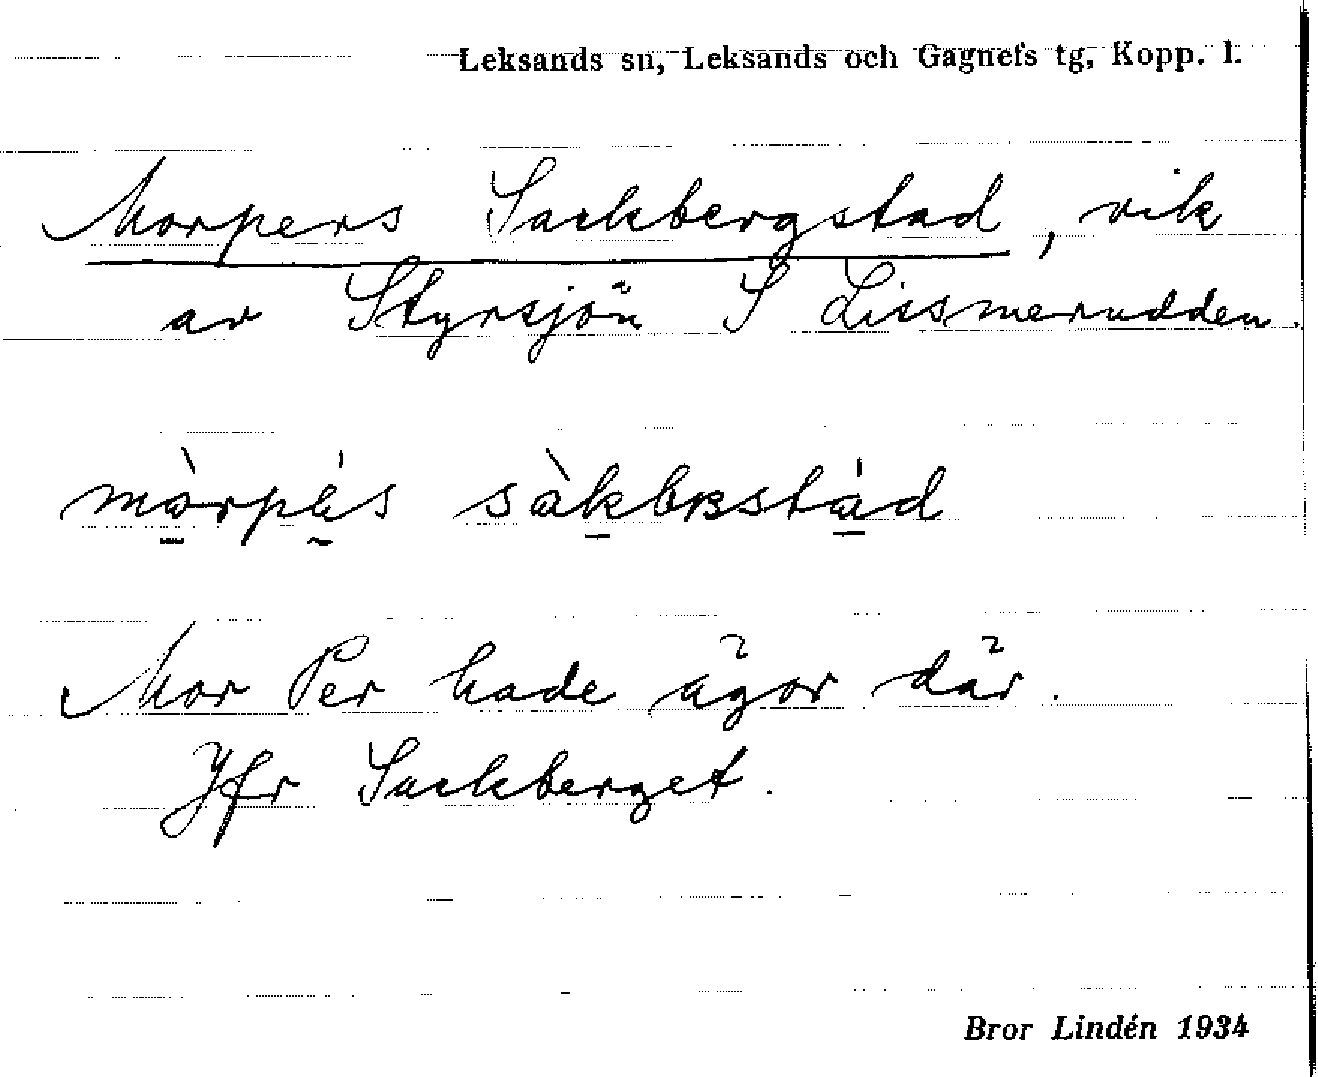 Leksands sn, Leksands och Gagnefs tg, Kopp. l.
Morpers Sackbergstad, vik
av Styrsjön S Lissmerudden.
Mor Per hade ägor där.
Jfr Sackberget.
Bror Lindén 1934